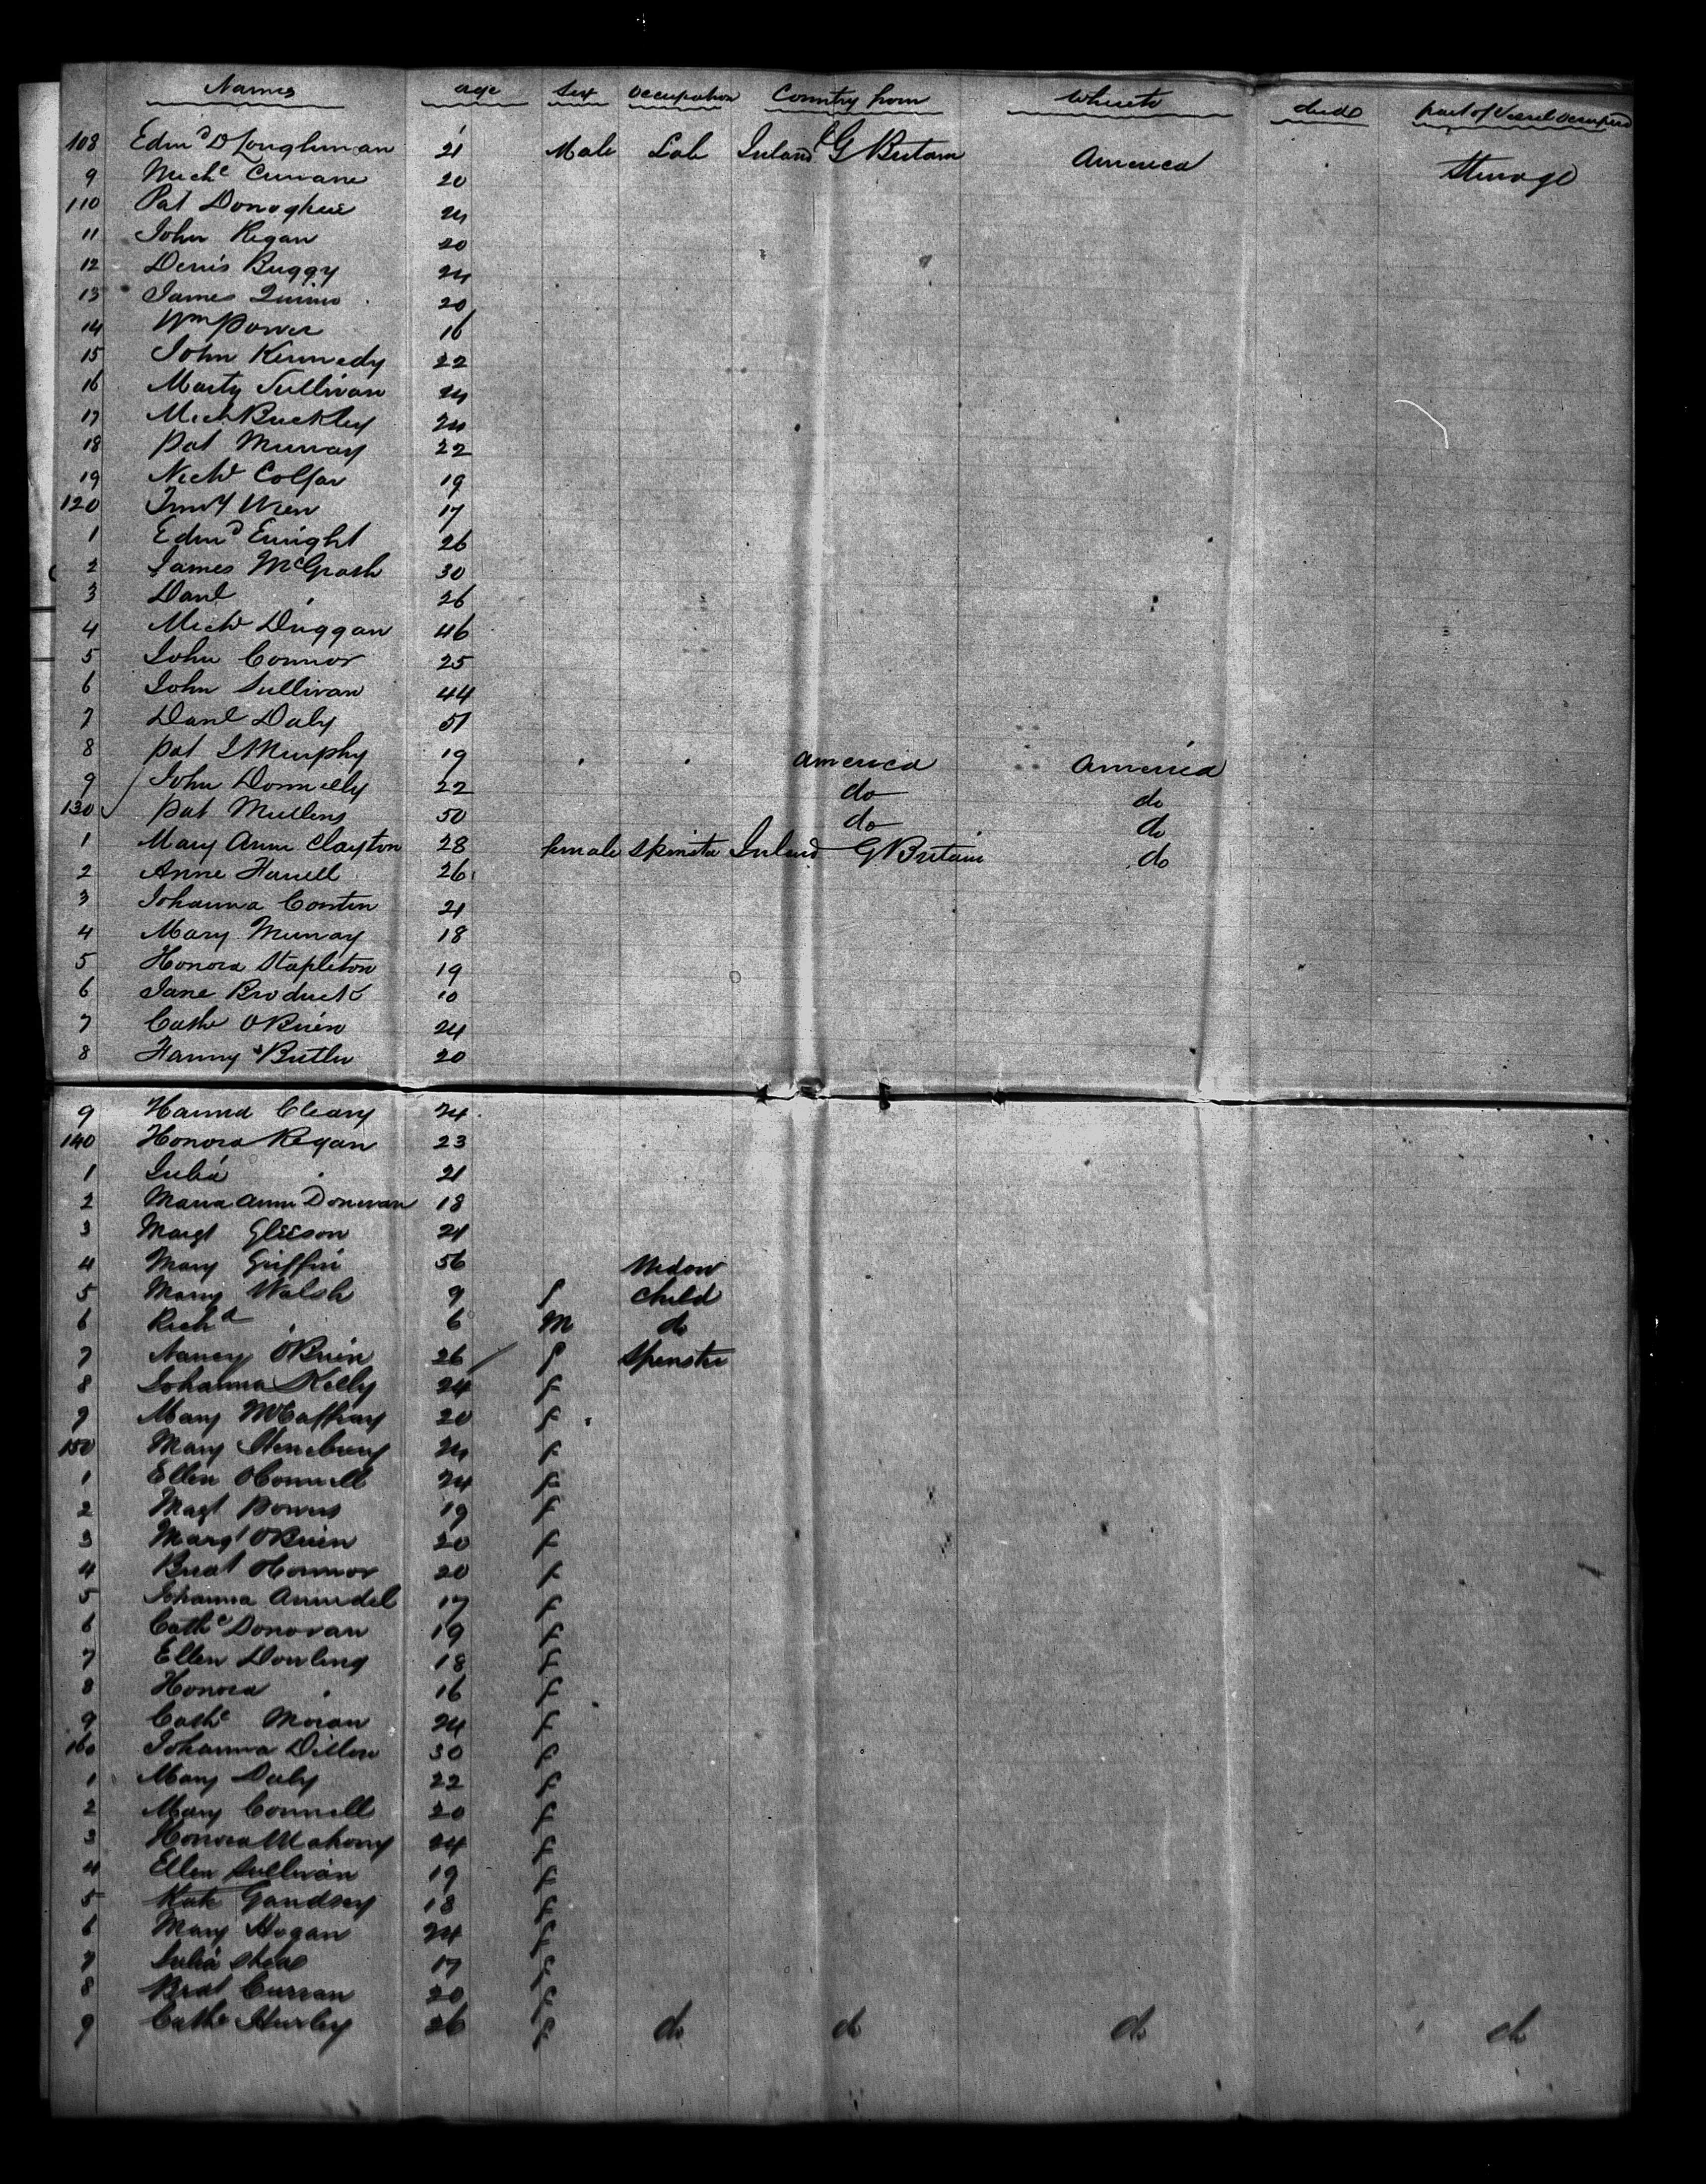 Names age Sex Occupation Country from Whereto died part of Vessel Occupied
108 Edmd D Loughman 21 Male Lab Ireland G Britain America Steerage
9 Michl 20
110 Pat Donoghue 24
11 John Regan 20
12 Denis Buggy 24
13 James Quinn 20
14 Wm Power 16
15 John Kennedy 22
16 Marty Sullivan 24
17 Mich Buckley 24
18 Pat Murray 22
19 Colfar 19
120 Wren 17
1 Edmd Enright 26
2 James McGrath 30
3 Danl 26
4 Michl Duggan 46
5 John Connor 25
6 John Sullivan 44
7 Danl Daly 51
8 Pat Murphy 19 America America
9 John Donnelly 22 do do
130 Pat Mullins 50 do do
1 Mary Anne Clayton 28 female Spinster Ireland G Britain do
2 Anne Farrell 26
3 Johanna 21
4 Mary Murray 18
5 Honora Stapleton 19
6 Jane 10
7 Cathe OBrien 24
8 Fanny Butler 20
9 Hanna Cleary 24
140 Honora Regan 23
1 Julia 21
2 Maria Anne Donovan 18
3 Margt Gleeson 24
4 Mary Griffin 56 Widow
5 Mary Walsh 9 f Child
6 Richd 6 M do
7 Nancy OBrien 26 f Spinster
8 Johanna Kelly 24 f
9 Mary McCaffray 20 f
150 Mary 24 f
1 Ellen OConnell 24 f
2 Magt Powers 19 f
3 Margt OBrien 20 f
4 OConnor 20 f
5 Johanna Arundel 17 f
6 Cathe Donovan 19 f
7 Ellen Dowling 18 f
8 Honora 16 f
9 Cathe Moran 24 f
160 Johanna Dillon 30 f
1 Mary Daly 22 f
2 Mary Connell 20 f
3 Honora Mahony 24 f
4 Ellen Sullivan 19 f
5 Kate 18 f
6 Mary Hogan 24 f
7 Julia Shea 17 f
8 Curran 20 f
9 Cathe Hurley 26 f do do do do